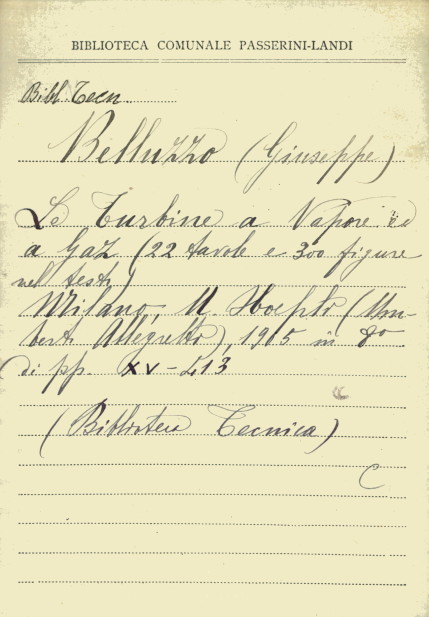 BIBLIOTECA COMUNALE PASSERINI-LANDI
Bibl. Tecn.
Belluzzo (Giuseppe)
Le Turbine a Vapore ed
a Gaz (22 tavole e 300 figure
nel testo)
Milano, U. Hoepli (Um-
berto Allegretti), 1905 in 8º
di pp. XV-413
(Biblioteca Tecnica)
C